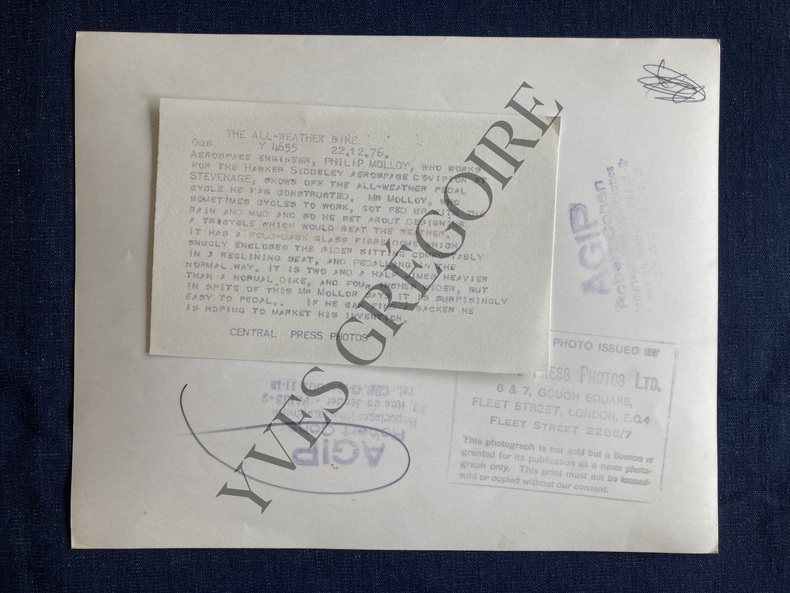 THE ALL-WEATHER BIKE
OGS Y 4655 22.12.76.
AEROSPACE ENGINEER, PHILIP MOLLOY, WHO WORKS
FOR THE HAWKER SIDDELEY AEROSPACE DIVISION
STEVENAGE, SHOWS OFF THE ALL-WEATHER PEDAL
CYCLE HE HAS CONSTRUCTED. MR MOLLOY, WHO
SOMETIMES CYCLES TO WORK, GOT FED UP WITH
RAIN AND MUD AND SO HE SET ABOUT DESIGNING
A TRICYCLE WHICH WOULD BEAT THE WEATHER.
IT HAS A FOLD-BACK GLASS FIBRE DOME WHICH
SNUGLY ENCLOSES THE RIDER SITTING COMFORTABLY
IN A RECLINING SEAT, AND PEDALLING IN THE
NORMAL WAY. IT IS TWO AND A HALF TIMES HEAVIER
THAN A NORMAL BIKE, AND FOUR INCHES WIDER, BUT
IN SPITE OF THIS MR MOLLOY SAYS IT IS SURPRISINGLY
EASY TO PEDAL.. IF HE CAN FIND A BACKER HE
IS HOPING TO MARKET HIS INVENTION.
CENTRAL PRESS PHOTOS
YVES GRÉGOIRE
AGIP
Robert Cohen
PHOTO ISSUED BY
PRESS PHOTOS LTD.
6 & 7, GOUGH SQUARE,
FLEET STREET, LONDON, E.C.4
FLEET STREET 2266/7
This photograph is not sold but a licence is
granted for its publication as a news photo-
graph only. This print must not be loaned
sold or copied without our consent.
AGIP
Robert Cohen